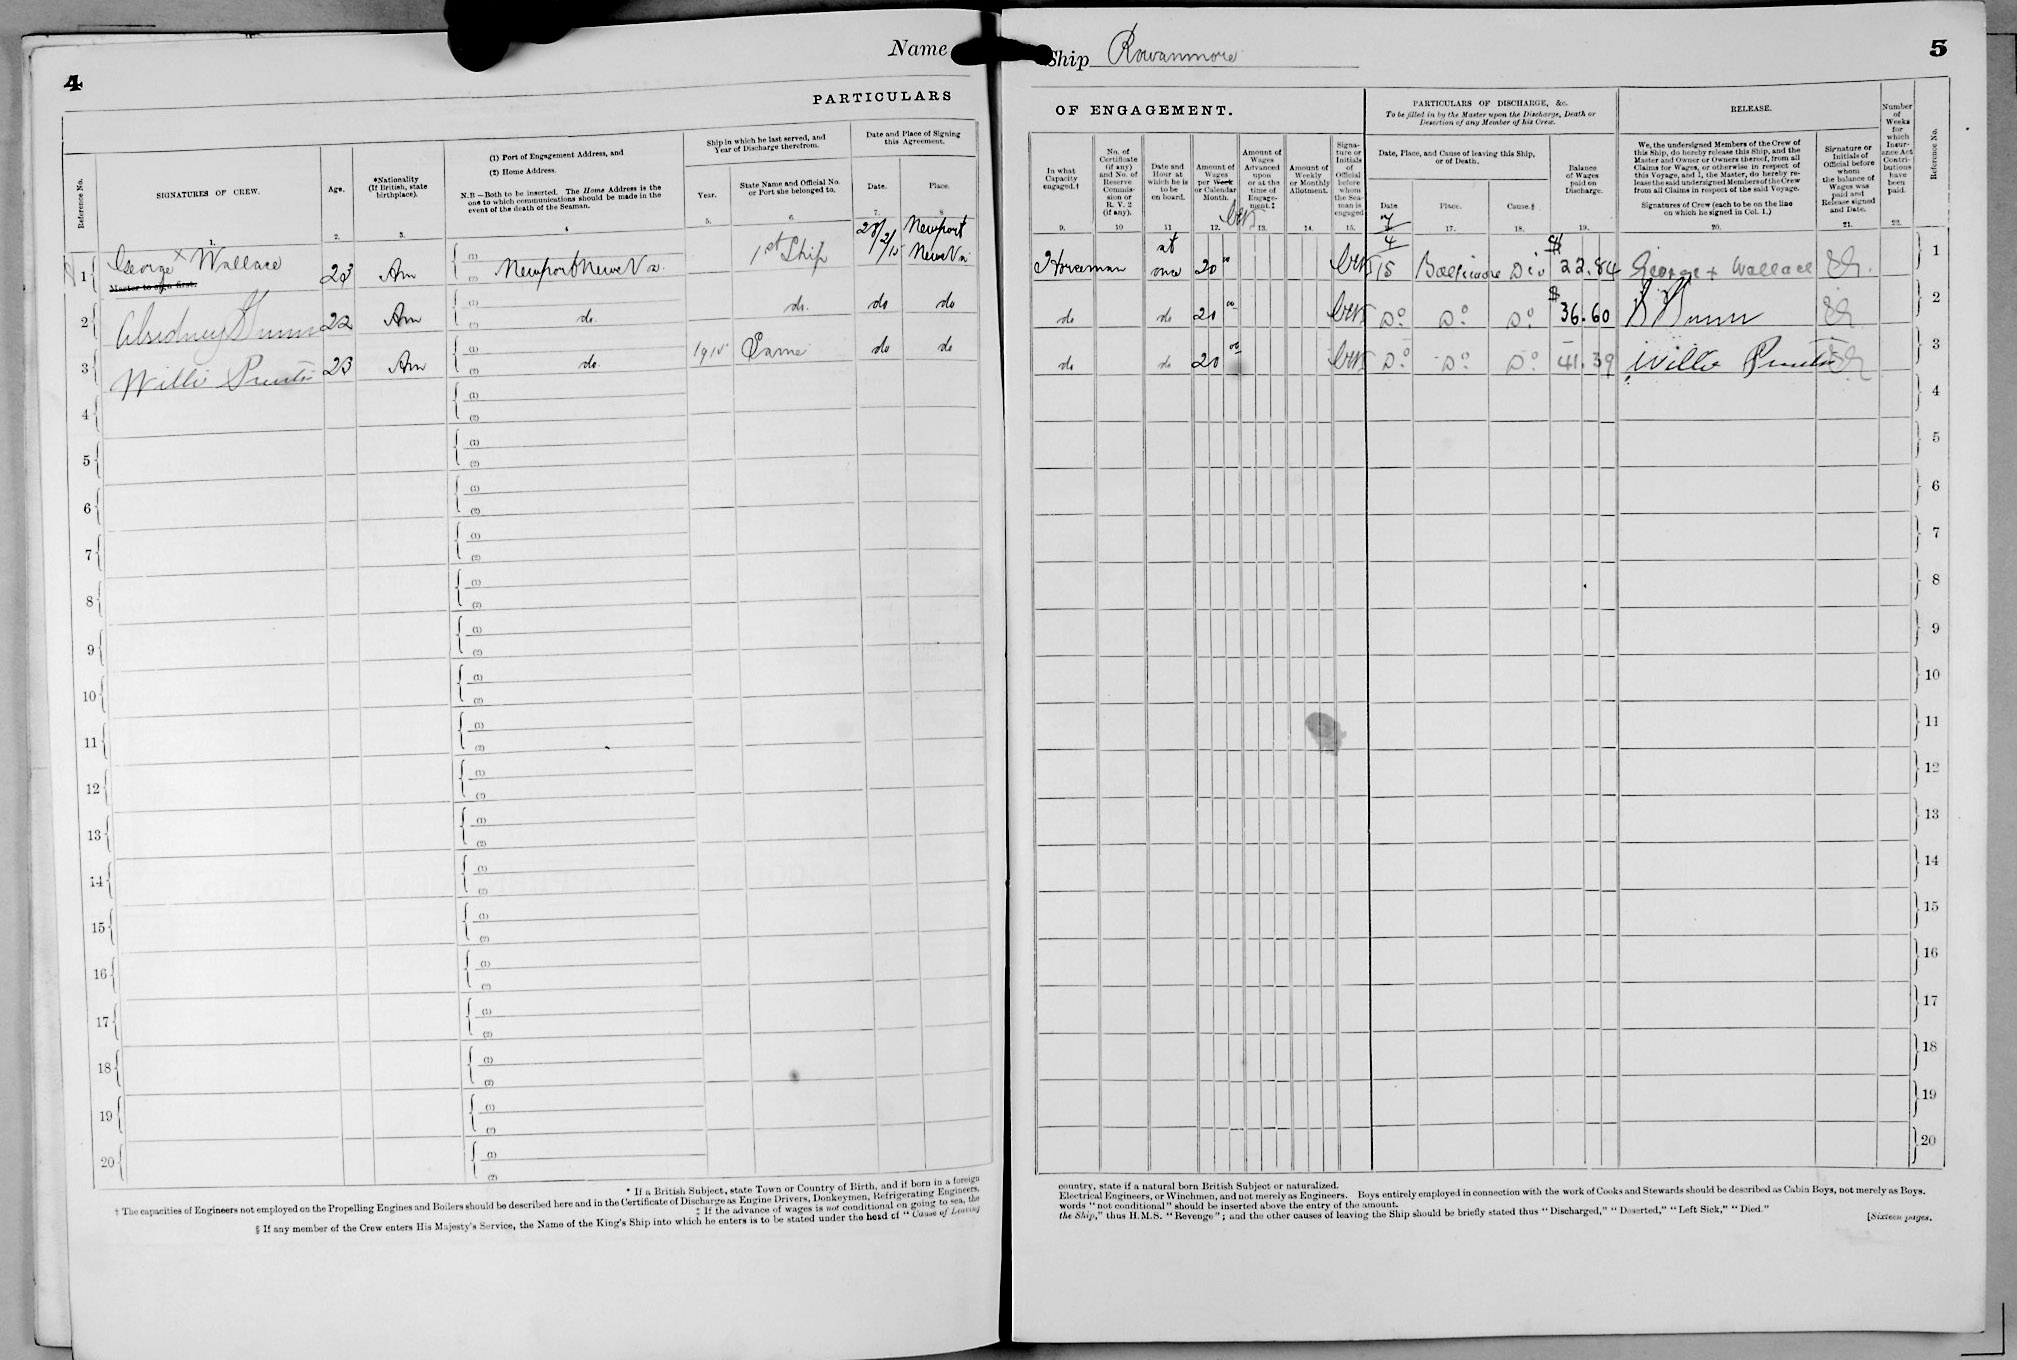 4
Name
PARTICULARS
Reference No.
SIGNATURES OF CREW.
Age.
*Nationality
(If British, state
birthplace).
(1) Port of Engagement Address, and
(2) Home Address.
N.B.—Both to be inserted. The Home Address is the
one to which communications should be made in the
event of the death of the Seaman.
Ship in which he last served, and
Year of Discharge therefrom.
Year.
State Name and Official No.
or Port she belonged to.
Date and Place of Signing
this Agreement.
Date.
Place.
1. 2. 3. 4 5. 6. 7. 8
1 George x Wallace 23 Am (1) (2) Newport News Va. 1st Ship 28/2/15 Newport News Va
Master to sign first.
2 22 Am (1) (2) do. do. do do
3 Willie 23 Am (1) (2) do. 1915 Same do do
4 (1) (2)
5 (1) (2)
6 (1) (2)
7 (1) (2)
8 (1) (2)
9 (1) (2)
10 (1) (2)
11 (1) (2)
12 (1) (2)
13 (1) (2)
14 (1) (2)
15 (1) (2)
16 (1) (2)
17 (1) (2)
18 (1) (2)
19 (1) (2)
20 (1) (2)
* If a British Subject, state Town or Country of Birth, and if born in a foreign
† The capacities of Engineers not employed on the Propelling Engines and Boilers should be described here and in the Certificate of Discharge as Engine Drivers, Donkeymen, Refrigerating Engineers,
‡ If the advance of wages is not conditional on going to sea, the
§ If any member of the Crew enters His Majesty's Service, the Name of the King's Ship into which he enters is to be stated under the head of "Cause of Leaving
Ship Rowanmore
5
OF ENGAGEMENT.
PARTICULARS OF DISCHARGE, &c.
To be filled in by the Master upon the Discharge, Death or
Desertion of any Member of his Crew.
RELEASE.
Number
of
Weeks
for
which
Insur-
ance Act
Contri-
butions
have
been
paid.
Reference No.
In what
Capacity
engaged.†
No. of
Certificate
(if any)
and No. of
Reserve
Commis-
sion or
R. V. 2
(if any).
Date and
Hour at
which he is
to be
on board.
Amount of
Wages
per Week
or Calendar
Month.
Amount of
Wages
Advanced
upon
or at the
time of
Engage-
ment.‡
Amount of
Weekly
or Monthly
Allotment.
Signa-
ture or
Initials
of
Official
before
whom
the Sea-
man is
engaged
Date, Place, and Cause of leaving this Ship,
or of Death.
Date
Place.
Cause.§
Balance
of Wages
paid on
Discharge.
We, the undersigned Members of the Crew of
this Ship, do hereby release this Ship, and the
Master and Owner or Owners thereof, from all
Claims for Wages, or otherwise in respect of
this Voyage, and I, the Master, do hereby re-
lease the said undersigned Members of the Crew
from all Claims in respect of the said Voyage.
Signatures of Crew (each to be on the line
on which he signed in Col. 1.)
Signature or
Initials of
Official before
whom
the balance of
Wages was
paid and
Release signed
and Date.
9. 10 11 12. 13. 14. 15. 17. 18. 19. 20. 21. 22.
Horseman at once 20 00 7/4 15 Baltimore Dis $22.84 George + Wallace 1
do do 20 00 Do. Do Do $36.60 2
do do 20 00 Do. Do Do 41.39 Willie 3
4
5
6
7
8
9
10
11
12
13
14
15
16
17
18
19
20
country, state if a natural born British Subject or naturalized.
Electrical Engineers, or Winchmen, and not merely as Engineers. Boys entirely employed in connection with the work of Cooks and Stewards should be described as Cabin Boys, not merely as Boys.
words "not conditional" should be inserted above the entry of the amount.
the Ship," thus H.M.S. "Revenge"; and the other causes of leaving the Ship should be briefly stated thus "Discharged," "Deserted," "Left Sick," "Died."
[Sixteen pages.